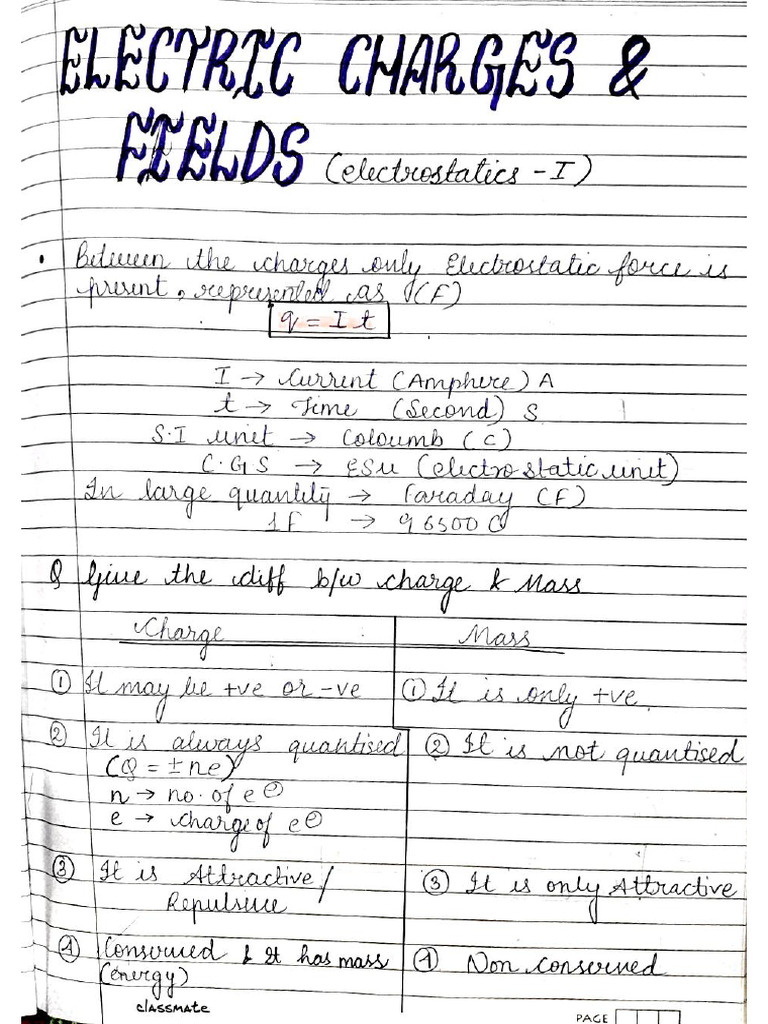 ELECTRIC CHARGES &
FIELDS (electrostatics - I)
• Between the charges only Electrostatic force is
present, represented as (F)
q = I t
I → Current (Amphere) A
t → Time (Second) S
S.I unit → Coloumb (C)
C.G.S → ESU (electrostatic unit)
In large quantity → Faraday (F)
1F → 96500 C
Q Give the diff b/w charge & Mass
Charge Mass
① It may be +ve or -ve ① It is only +ve.
② It is always quantised ② It is not quantised
(Q = ± ne)
n → no. of e⊖
e → charge of e⊖
③ It is Attractive/ ③ It is only Attractive
Repulsive
④ Conserved & It has mass ④ Non conserved
(energy)
classmate
PAGE